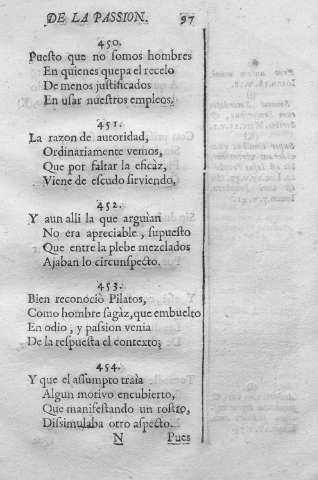 DE LA PASSION. 97
450.
Puesto que no somos hombres
En quienes quepa el recelo
De menos justificados
En usar nuestros empleos;
451.
La razon de autoridad,
Ordinariamente vemos,
Que por faltar la eficaz,
Viene de escudo sirviendo,
452.
Y aun alli la que arguìan
No era apreciable, supuesto
Que entre la plebe mezclados
Ajaban lo circunspecto.
453.
Bien reconociò Pilatos,
Como hombre sagáz, que embuelto
En odio, y passion venia
De la respuesta el contexto;
454.
Y que el assumpto traìa
Algun motivo encubierto,
Que manifestando un rostro,
Dissimulaba otro aspecto.
N Pues